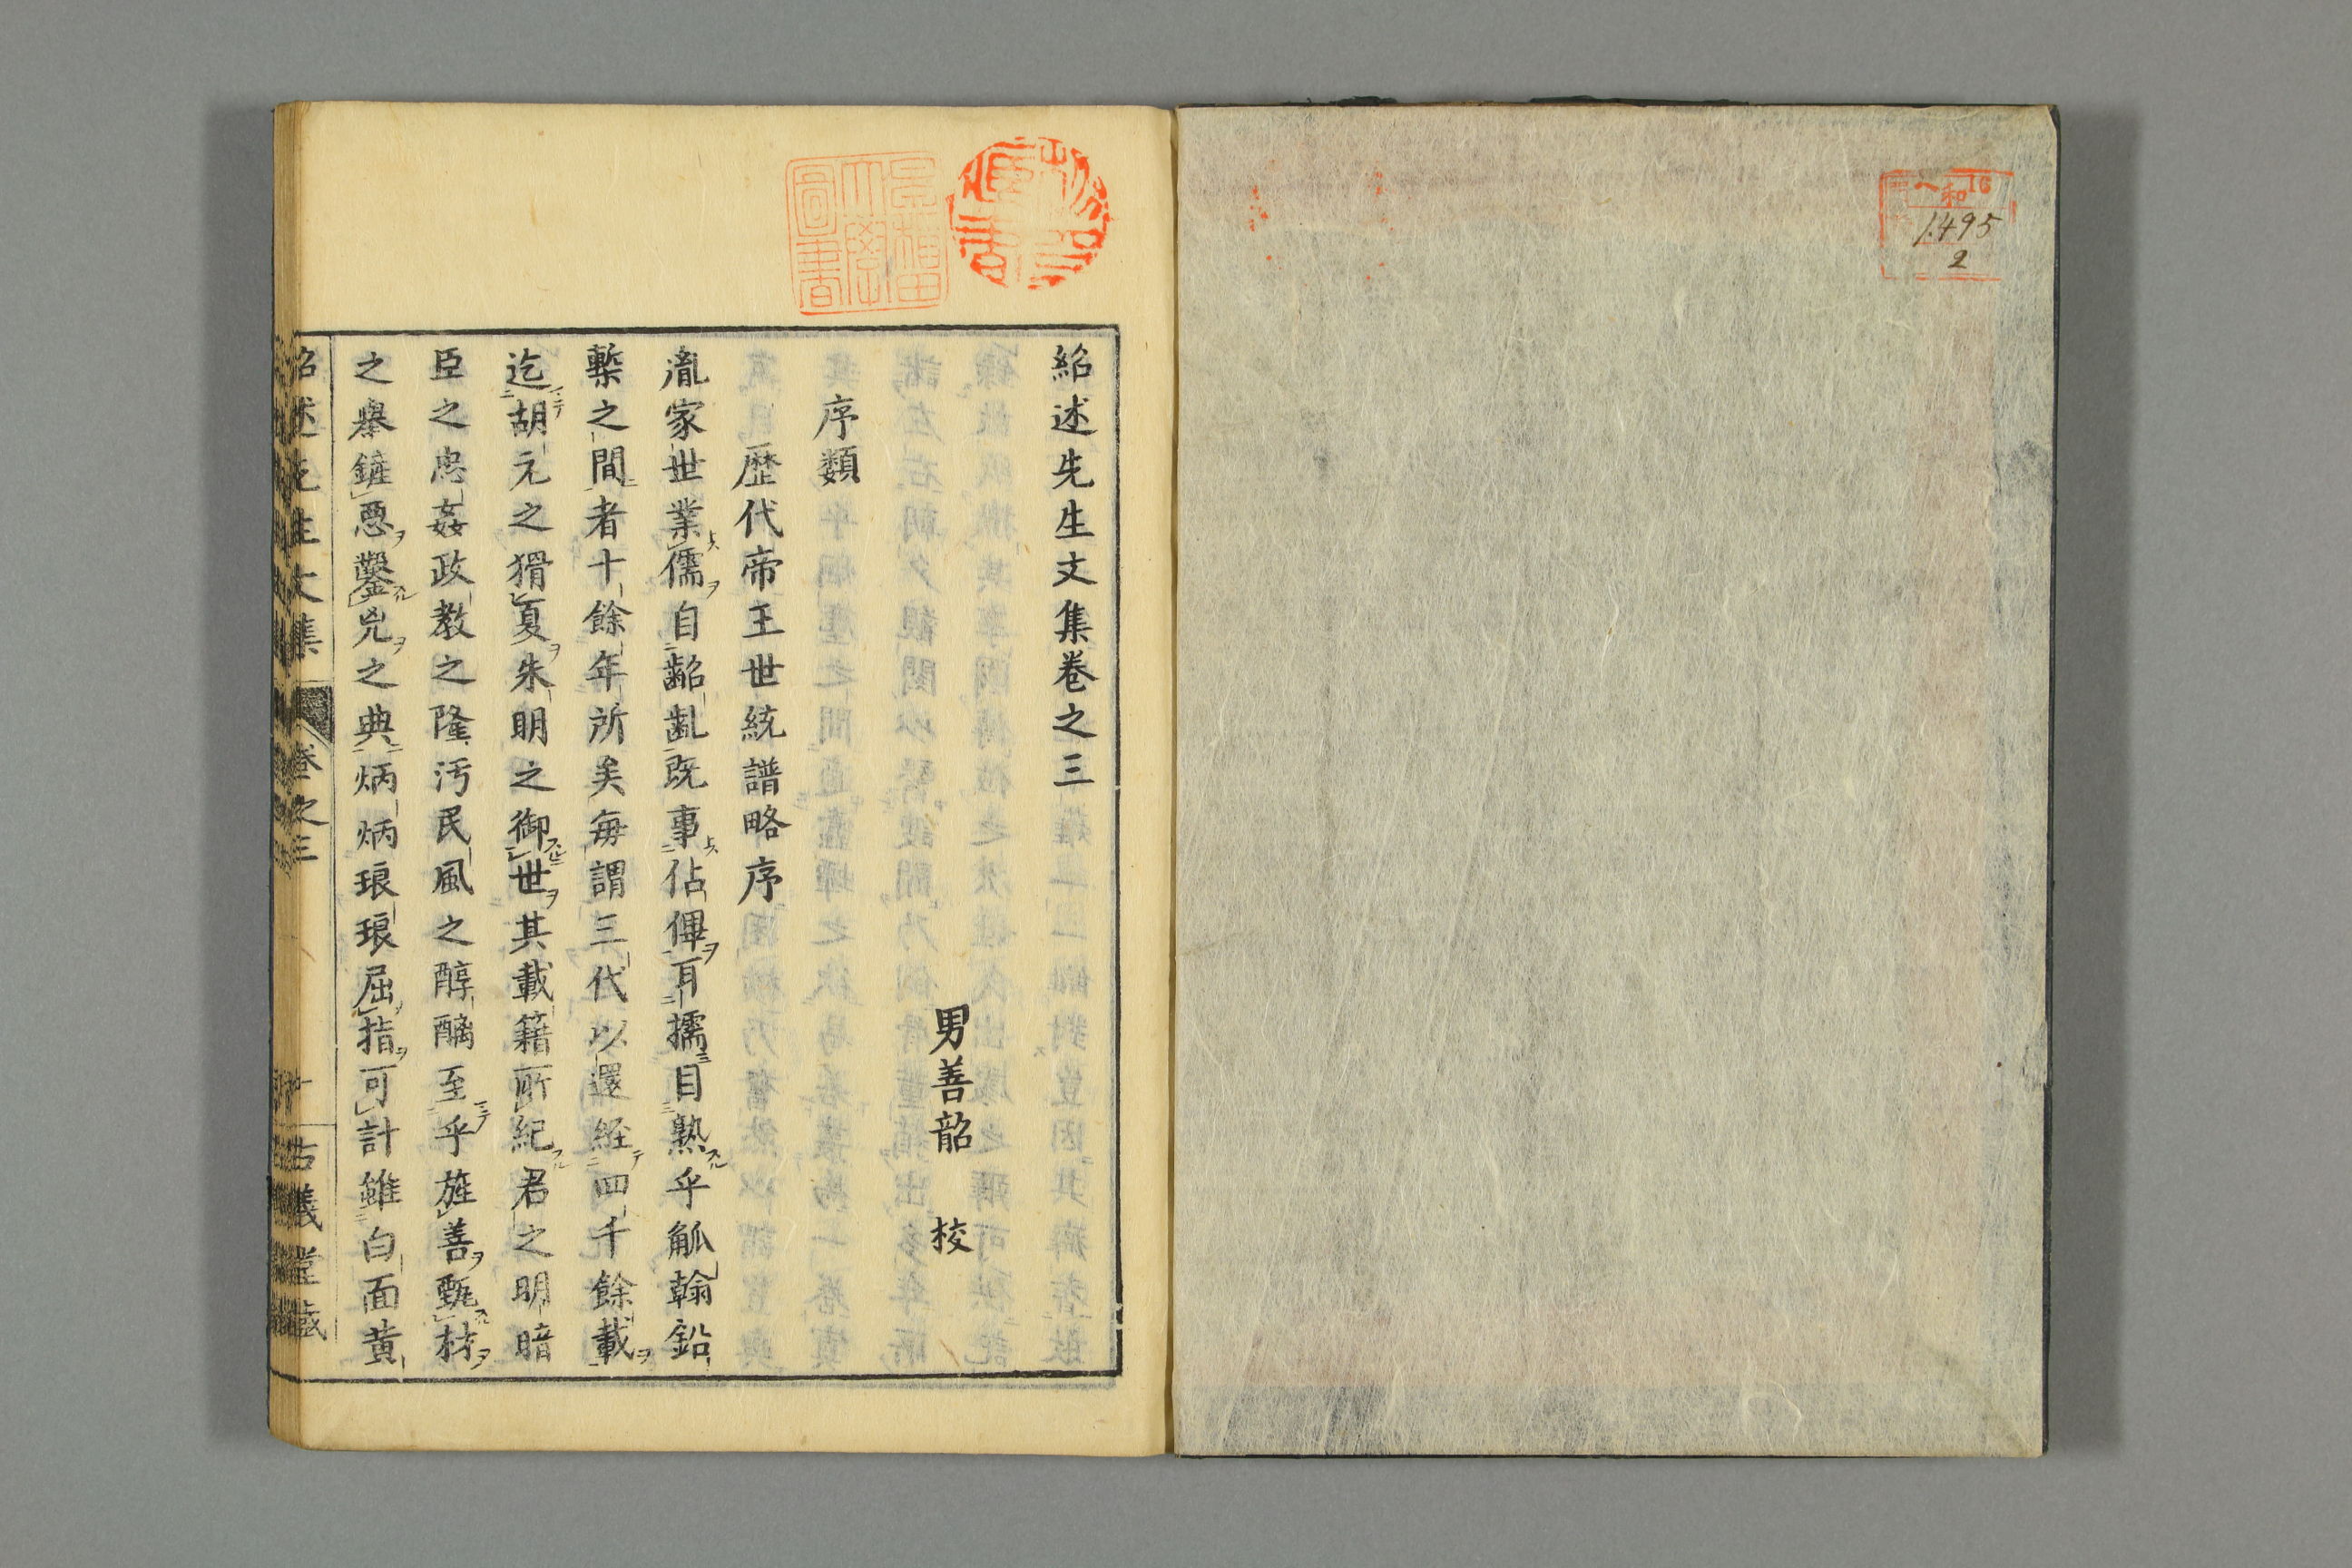 和16
1495
2
紹述先生文集巻之三
男善韶　校
序類
歴代帝王世統譜略序
胤家世業儒自齠齔既事佔僤耳擩目熟乎觚翰鉛
槧之間者十餘年所矣毎謂三代以還経四千餘載
迄胡元之猾夏朱明之御世其載籍所紀君之明暗
臣之忠姦政教之隆汚民風之醇醨至乎旌善甄材
之舉鏟惡鑿兇之典炳炳琅琅屈指可計雖白面黄
紹述先生文集　巻之三　古義堂蔵